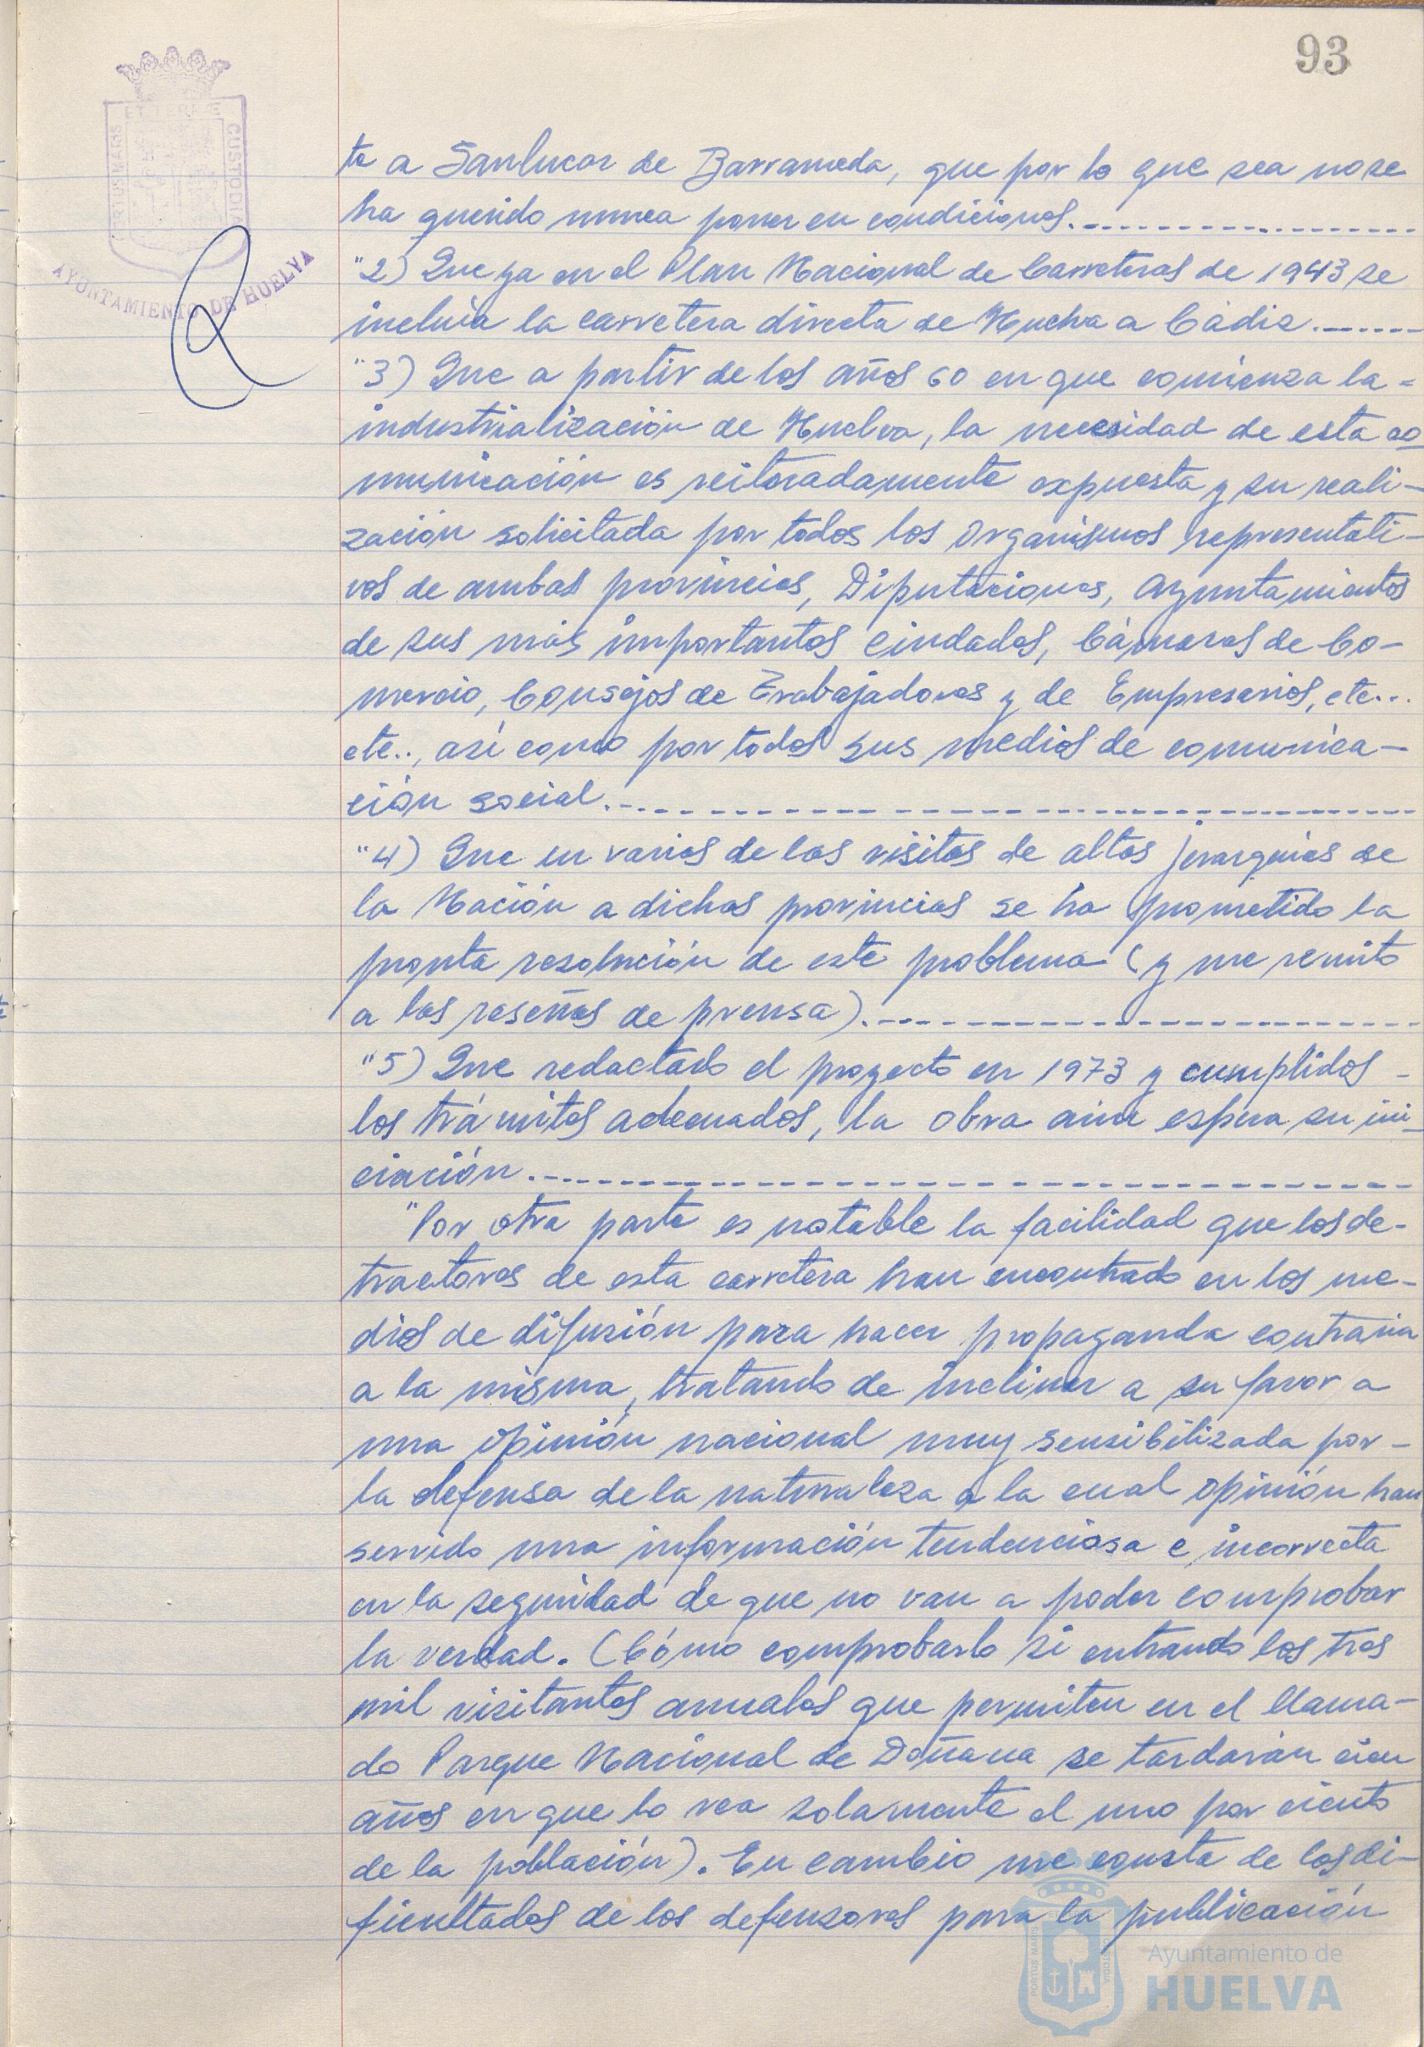 93
PORTUS MARIS ET TERRE CUSTODIA
AYUNTAMIENTO DE HUELVA
te a Sanlucar de Barrameda, que por lo que sea no se
ha querido nunca poner en condiciones.
"2) Que ya en el Plan Nacional de Carreteras de 1943 se
incluía la carretera directa de Hucha a Cádiz.
"3) Que a partir de los años 60 en que comienza la=
industrialización de Huelva, la necesidad de esta co
municación es reiteradamente expuesta y su reali-
zación solicitada por todos los Organismos representati-
vos de ambas provincias, Diputaciones, Ayuntamientos
de sus más importantes ciudades, Cámaras de Co-
mercio, Consejos de Trabajadores y de Empresarios, etc...
etc.., así como por todos sus medios de comunica-
ción social.
"4) Que en varias de las visitas de altas jerarquías de
la Nación a dichas provincias se ha prometido la
pronta resolución de este problema (y me remito
a las reseñas de prensa).
"5) Que redactado el proyecto en 1973 y cumplidos -
los trámites adecuados, la obra aún espera su ini-
ciación.
"Por otra parte es notable la facilidad que los de-
tractores de esta carretera han encontrado en los me-
dios de difusión para hacer propaganda contraria
a la misma, tratando de inclinar a su favor a
una opinión nacional muy sensibilizada por -
la defensa de la naturaleza a la cual opinión han
servido una información tendenciosa e incorrecta
en la seguridad de que no van a poder comprobar
la verdad. (Cómo comprobarlo si entrando los tres
mil visitantes anuales que permiten en el llama-
do Parque Nacional de Doñana se tardarían cien
años en que lo vea solamente el uno por ciento
de la población). En cambio me consta de las di-
ficultades de los defensores para la publicación
Ayuntamiento de
HUELVA